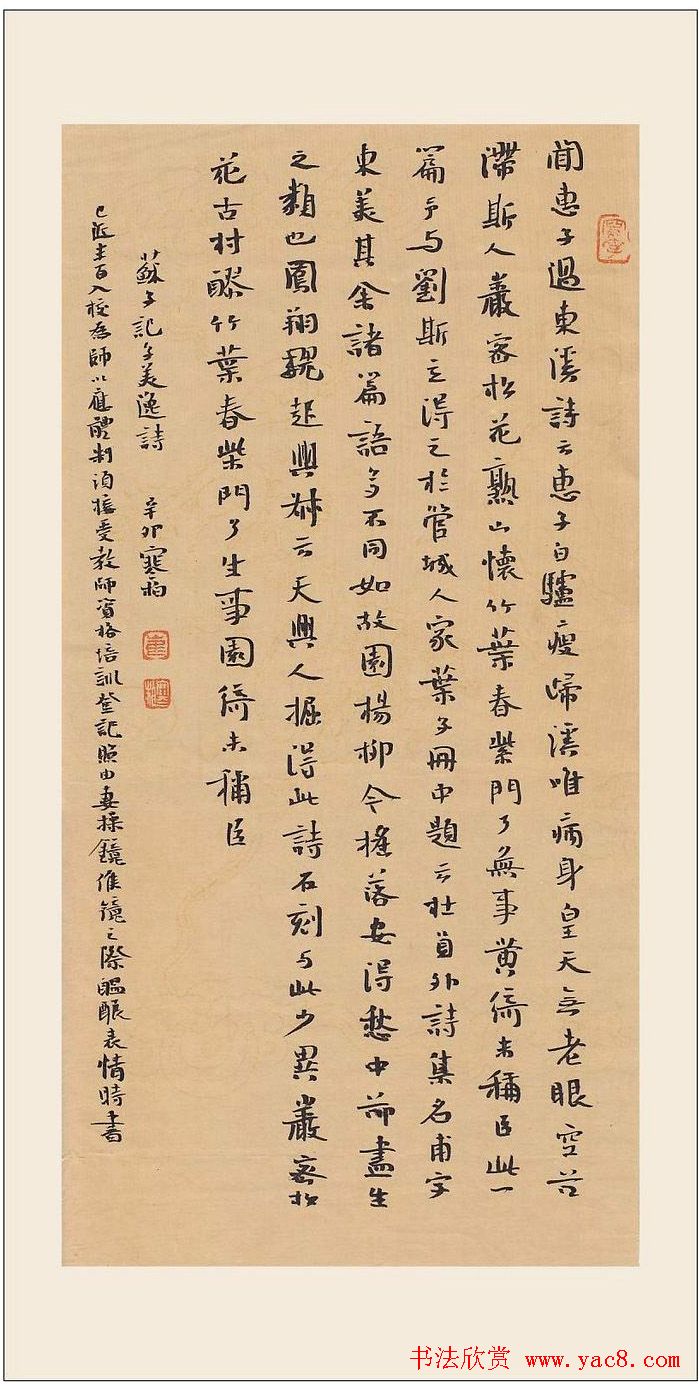 闻惠子過東溪詩云惠子白驢瘦歸溪唯病身皇天無老眼空谷
滯斯人巖密松花熟山懷竹葉春柴門了無事黄綺未稱臣此一
篇予与劉斯立得之於管城人家葉子冊中題云杜員外詩集名甫字
東美其余諸篇語多不同如故園楊柳今搖落安得愁中却盡生
之類也鳳翔魏起興叔云天興人掘得此詩石刻与此少異巖密松
花古村醪竹葉春柴門了生事園綺未稱臣
蘇子記子美逸詩 辛卯寒柏
已近半百入校為師以應體制須接受教師資格培訓登記照由妻操鏡佳鏡之際醞釀表情時書
书法欣赏 www.yac8.com